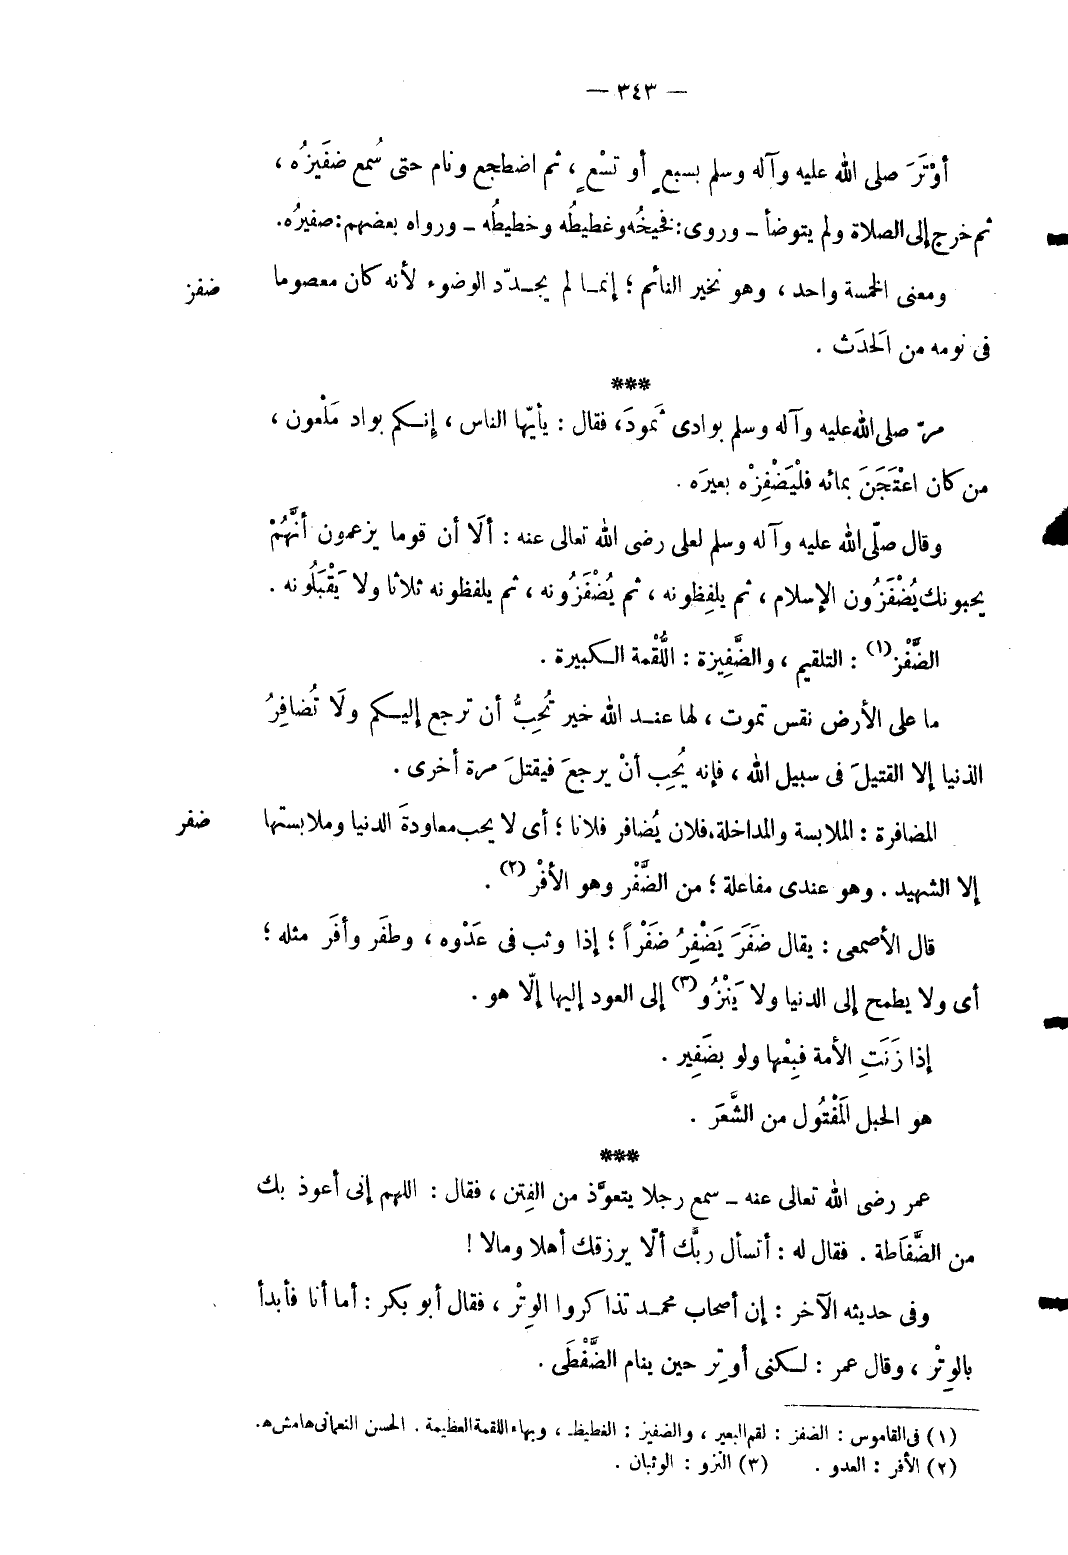 — ٣٤٣ —
أوْتَرَ صلى الله عليه وآله وسلم بسبعٍ أو تسْعٍ ، ثم اضطجع ونام حتى سُمع ضفَيزُه ،
ثم خرج إلى الصلاة ولم يتوضأ – وروى : فخيخُه وغطيطُه وخطيطُه – ورواه بعضهم : صفيرُه .
ومعنى الخمسة واحد ، وهو نخير النائم ؛ إنما لم يجدّد الوضوء لأنه كان معصوما
ضفز
فى نومه من الَحدَث .
***
مرّ صلى الله عليه وآله وسلم بوادى ثَمودَ ، فقال : يأيّها الناس ، إنكم بواد مَلْعون ،
من كان اعْتَجَنَ بمائه فلْيَضْفِزْه بعيرَه .
وقال صلّى الله عليه وآله وسلم لعلى رضى الله تعالى عنه : ألَا أن قوما يزعمون أنَّهُمْ
يحبونك يُضْفَزُون الإسلام ، ثم يلفِظونه ، ثم يُضْفَزُونه ، ثم يلفظونه ثلاثا ولا يَقْبَلُونه .
الضَّفْز (١) : التلقيم ، والضَّفِيزة : اللُّقْمة الكبيرة .
ما على الأرض نفس تموت ، لها عند الله خير تُحِبُّ أن ترجع إليكم ولَا تُضافِرُ
الذنيا إلا القتيلَ فى سبيل الله ، فإنه يُحِب أنْ يرجعَ فيقتلَ مرة أخرى .
المضافرة : الملابسة والمداخلة، فلان يُضافر فلانا ؛ أى لا يحب معاودةَ الدنيا وملابستها
ضفر
إلا الشهيد . وهو عندى مفاعلة ؛ من الضَّفْر وهو الأفْر (٢) .
قال الأصمعى : يقال ضَفَرَ يَضْفِرُ ضَفْراً ؛ إذا وثب فى عَدْوه ، وطفَر وأفَر مثله ؛
أى ولا يطمح إلى الدنيا ولا يَنْزُو (٣) إلى العود إليها إلّا هو .
إذا زَنَتِ الأمة فبِعْها ولو بضَفِير .
هو الحبل الَمفْتُول من الشَّعَر .
***
عمر رضى الله تعالى عنه – سمع رجلا يتعوَّذ من الفِتن ، فقال : اللهم إنى أعوذ بك
من الضَّفَاطة . فقال له : أتسأل ربَّك ألّا يرزقك أهلا ومالا !
وفى حديثه الآخر : إن أصحاب محمد تذاكروا الوِتْر ، فقال أبو بكر : أما أنا فأبدأ
بالوِتْر ، وقال عمر : لكنى أوتِر حين ينام الضَّفْطَى .
(١) فى القاموس : الضفز : لقم البعير ، والضفيز : الغطيظ ، وبهاء اللقمة العظيمة . الحسن النعمانى هامش هـ.
(٢) الأفر : العدو .   (٣) النزو : الوثبان .